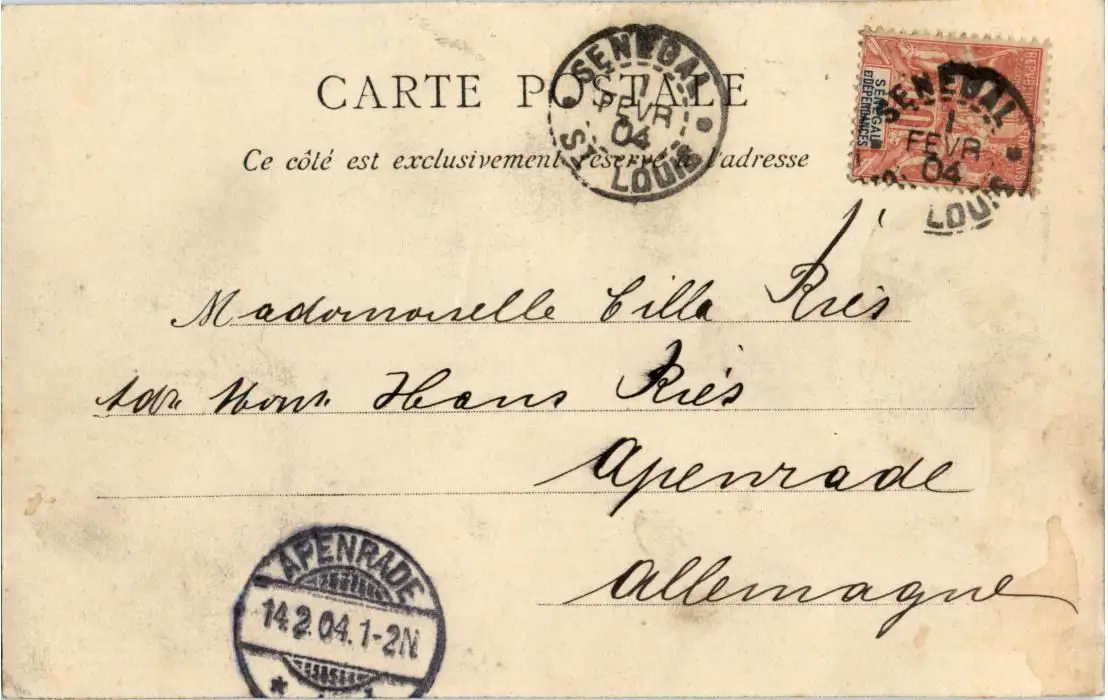 CARTE POSTALE
Ce côté est exclusivement réservé à l'adresse
SENEGAL
1
FEVR
04
ST LOUIS
SÉNÉGAL
ET DÉPENDANCES
10
SENEGAL
1
FEVR
04
LOUIS
Mademoiselle Cilla Riés
Adr. Mons. Hans Riés
Apenrade
Allemagne
APENRADE
14.2.04.1-2N